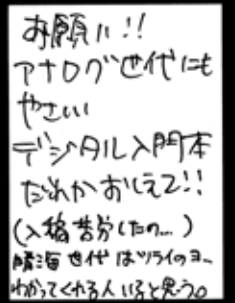 お願い!!
アナログ世代にも
やさしい
デジタル入門本
だれかおしえて!!
(入稿苦労したの…)
世代はツライのヨ…
わかってくれる人いると思う。